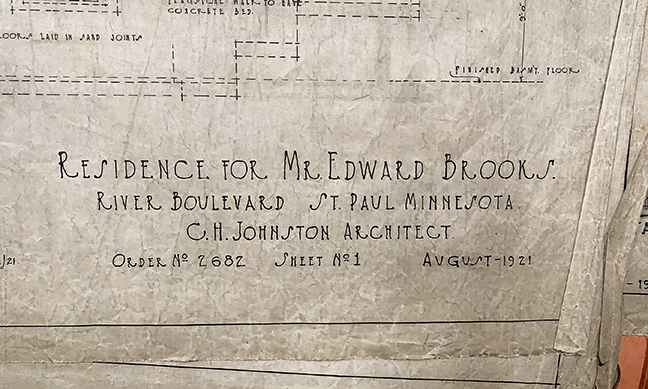 FLAGSTONE WALK TO HAVE
CONCRETE BED.
LAID IN SAND JOINTS
FINISHED BASM'T. FLOOR
RESIDENCE FOR MR. EDWARD BROOKS.
RIVER BOULEVARD ST. PAUL MINNESOTA.
C. H. JOHNSTON ARCHITECT.
ORDER Nº 2682 SHEET Nº 1 AUGUST-1921